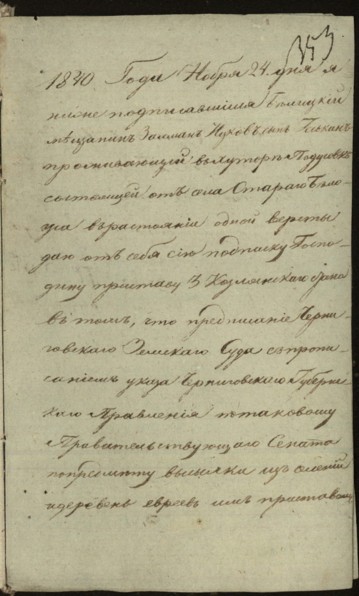 353
1840 Года Ноября 24 дня я
ниже подписавшийся Белицкий
мещанин Залман Нуховъ сынъ
проживающій въ хуторе Подусовке
состоящей отъ села Стараго Бело
уса въ растояніи одной версты
даю отъ себя сію подписку Госпо
дину приставу 3 Козлянскаго стана
въ томъ, что предписаніе Черни
говскаго Земскаго Суда съ пропи
саніемъ указа Черниговскаго Губерн
скаго Правленія и таковому
Правительствующаго Сената
по предмету высылки изъ селеній
и деревень евреевъ имъ приставомъ